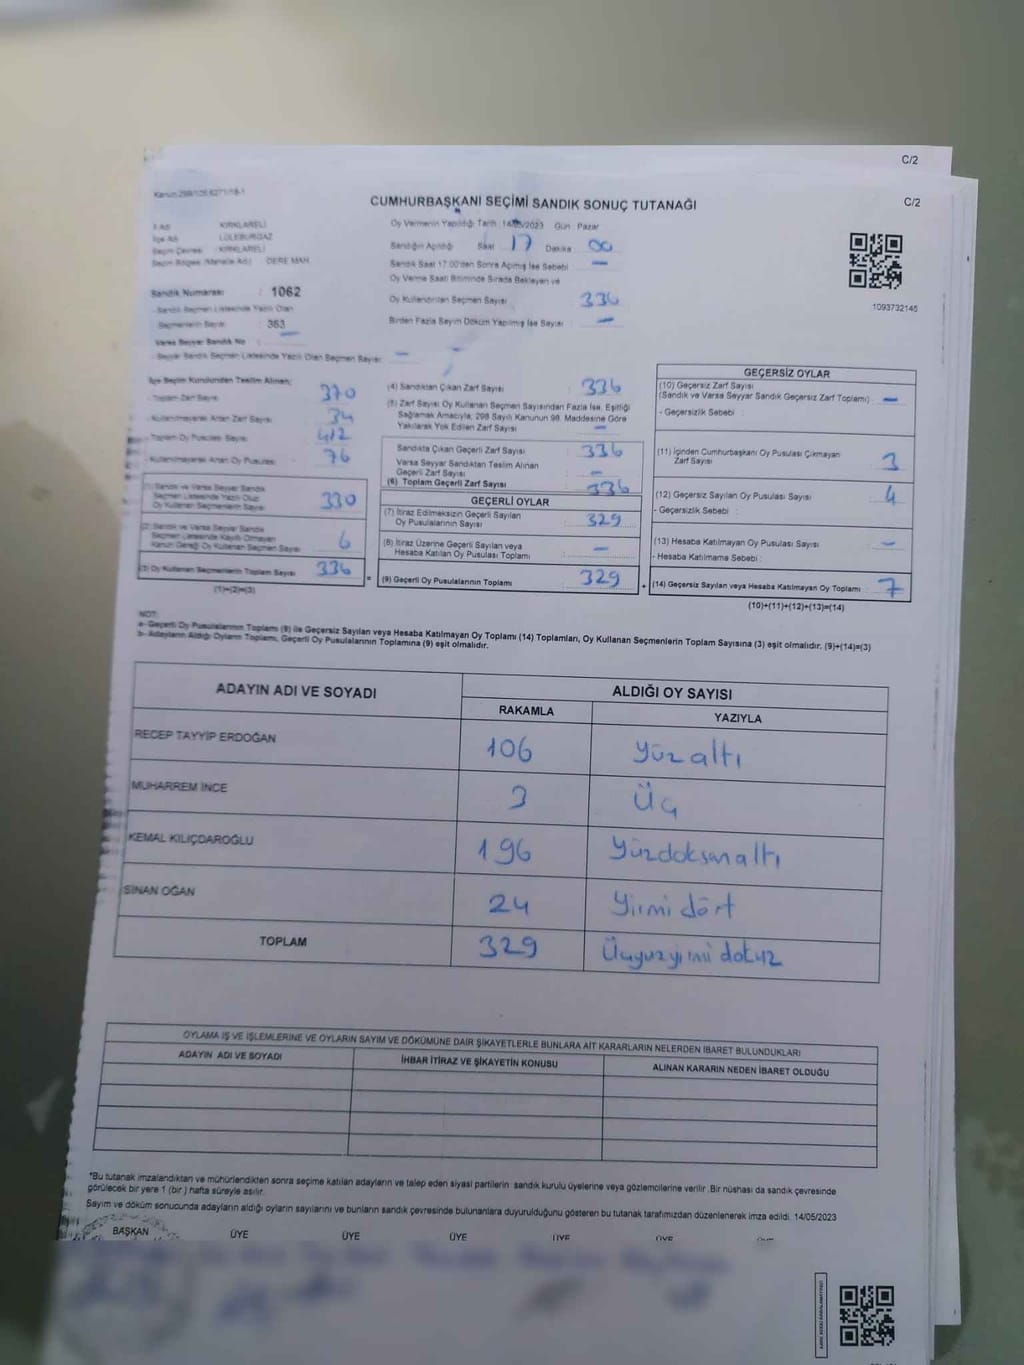 C/2
C/2
CUMHURBAŞKANI SEÇİMİ SANDIK SONUÇ TUTANAĞI
İl Adı : KIRKLARELİ
İlçe Adı : LÜLEBURGAZ
Seçim Çevresi : KIRKLARELİ
Seçim Bölgesi (Mahalle Adı) : DERE MAH.
Sandık Numarası : 1062
Sandık Seçmen Listesinde Yazılı Olan
Seçmenlerin Sayısı : 363
Varsa Seyyar Sandık No :
Seyyar Sandık Seçmen Listesinde Yazılı Olan Seçmen Sayısı : –
Oy Vermenin Yapıldığı Tarih : 14/05/2023 Gün : Pazar
Sandığın Açıldığı Saat 17 Dakika : 00
Sandık Saat 17.00'den Sonra Açılmış İse Sebebi : –
Oy Verme Saati Bitiminde Sırada Bekleyen ve
Oy Kullandırılan Seçmen Sayısı : 336
Birden Fazla Sayım Döküm Yapılmış İse Sayısı : –
1093732145
İlçe Seçim Kurulundan Teslim Alınan;
- Toplam Zarf Sayısı : 370
- Kullanılmayarak Artan Zarf Sayısı : 34
- Toplam Oy Pusulası Sayısı : 412
- Kullanılmayarak Artan Oy Pusulası : 76
(1) Sandık ve Varsa Seyyar Sandık
Seçmen Listesinde Yazılı Olup
Oy Kullanan Seçmenlerin Sayısı : 330
(2) Sandık ve Varsa Seyyar Sandık
Seçmen Listesinde Kayıtlı Olmayan
Kanun Gereği Oy Kullanan Seçmen Sayısı : 6
(3) Oy Kullanan Seçmenlerin Toplam Sayısı : 336
(1)+(2)=(3)
(4) Sandıktan Çıkan Zarf Sayısı : 336
(5) Zarf Sayısı Oy Kullanan Seçmen Sayısından Fazla İse, Eşitliği
Sağlamak Amacıyla, 298 Sayılı Kanunun 98. Maddesine Göre
Yakılarak Yok Edilen Zarf Sayısı : –
Sandıkta Çıkan Geçerli Zarf Sayısı : 336
Varsa Seyyar Sandıktan Teslim Alınan
Geçerli Zarf Sayısı : –
(6) Toplam Geçerli Zarf Sayısı : 336
GEÇERLİ OYLAR
(7) İtiraz Edilmeksizin Geçerli Sayılan
Oy Pusulalarının Sayısı : 329
(8) İtiraz Üzerine Geçerli Sayılan veya
Hesaba Katılan Oy Pusulası Toplamı : –
= (9) Geçerli Oy Pusulalarının Toplamı : 329 +
GEÇERSİZ OYLAR
(10) Geçersiz Zarf Sayısı
(Sandık ve Varsa Seyyar Sandık Geçersiz Zarf Toplamı) : –
- Geçersizlik Sebebi :
(11) İçinden Cumhurbaşkanı Oy Pusulası Çıkmayan
Zarf Sayısı : 3
(12) Geçersiz Sayılan Oy Pusulası Sayısı : 4
- Geçersizlik Sebebi :
(13) Hesaba Katılmayan Oy Pusulası Sayısı : –
- Hesaba Katılmama Sebebi :
(14) Geçersiz Sayılan veya Hesaba Katılmayan Oy Toplamı : 7
(10)+(11)+(12)+(13)=(14)
NOT:
a- Geçerli Oy Pusulalarının Toplamı (9) ile Geçersiz Sayılan veya Hesaba Katılmayan Oy Toplamı (14) Toplamları, Oy Kullanan Seçmenlerin Toplam Sayısına (3) eşit olmalıdır. (9)+(14)=(3)
b- Adayların Aldığı Oyların Toplamı, Geçerli Oy Pusulalarının Toplamına (9) eşit olmalıdır.
ADAYIN ADI VE SOYADI ALDIĞI OY SAYISI
RAKAMLA YAZIYLA
RECEP TAYYİP ERDOĞAN 106 Yüz altı
MUHARREM İNCE 3 Üç
KEMAL KILIÇDAROĞLU 196 Yüzdoksanaltı
SİNAN OĞAN 24 Yirmi dört
TOPLAM 329 Üçyüzyirmi dokuz
OYLAMA İŞ VE İŞLEMLERİNE VE OYLARIN SAYIM VE DÖKÜMÜNE DAİR ŞİKAYETLERLE BUNLARA AİT KARARLARIN NELERDEN İBARET BULUNDUKLARI
ADAYIN ADI VE SOYADI İHBAR İTİRAZ VE ŞİKAYETİN KONUSU ALINAN KARARIN NEDEN İBARET OLDUĞU
*Bu tutanak imzalandıktan ve mühürlendikten sonra seçime katılan adayların ve talep eden siyasi partilerin sandık kurulu üyelerine veya gözlemcilerine verilir. Bir nüshası da sandık çevresinde
görülecek bir yere 1 (bir) hafta süreyle asılır.
Sayım ve döküm sonucunda adayların aldığı oyların sayılarını ve bunların sandık çevresinde bulunanlara duyurulduğunu gösteren bu tutanak tarafımızdan düzenlenerek imza edildi. 14/05/2023
BAŞKAN ÜYE ÜYE ÜYE ÜYE ÜYE